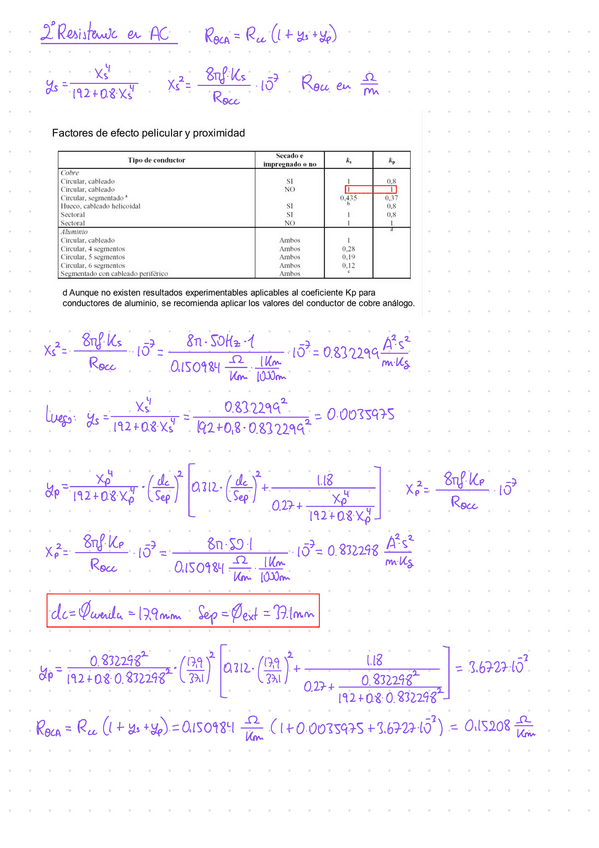 2º Resistencia en AC   Rθca = Rcc (1 + ys + yp)
ys = Xs⁴ / (192 + 0.8·Xs⁴)   Xs² = 8πf·Ks / Rθcc · 10⁻⁷   Rθcc en Ω/m
Factores de efecto pelicular y proximidad
Tipo de conductor   Secado e impregnado o no   ks   kp
Cobre
Circular, cableado   SI   1   0,8
Circular, cableado   NO   1   1
Circular, segmentado a   0,435   0,37
Hueco, cableado helicoidal   SI   b   0,8
Sectoral   SI   1   0,8
Sectoral   NO   1   1
Aluminio   d
Circular, cableado   Ambos   1
Circular, 4 segmentos   Ambos   0,28
Circular, 5 segmentos   Ambos   0,19
Circular, 6 segmentos   Ambos   0,12
Segmentado con cableado periférico   Ambos   c
d Aunque no existen resultados experimentables aplicables al coeficiente Kp para
conductores de aluminio, se recomienda aplicar los valores del conductor de cobre análogo.
Xs² = 8πf·Ks / Rθcc · 10⁻⁷ = 8π·50Hz·1 / (0.150984 Ω/Km · 1Km/1000m) · 10⁻⁷ = 0.832299 A²·s²/(m·Kg)
Luego: ys = Xs⁴ / (192 + 0.8·Xs⁴) = 0.832299² / (192 + 0,8·0.832299²) = 0.0035975
yp = Xp⁴ / (192 + 0.8·Xp⁴) · (dc/Sep)² [0.312·(dc/Sep)² + 1.18 / (0.27 + Xp⁴ / (192 + 0.8·Xp⁴))]   Xp² = 8πf·Kp / Rθcc · 10⁻⁷
Xp² = 8πf·Kp / Rθcc · 10⁻⁷ = 8π·50·1 / (0.150984 Ω/Km · 1Km/1000m) · 10⁻⁷ = 0.832298 A²·s²/(m·Kg)
dc = Øcuerda = 17,9mm   Sep = Øext = 37.1mm
yp = 0.832298² / (192 + 0.8·0.832298²) · (17,9/37,1)² [0.312·(17,9/37,1)² + 1.18 / (0.27 + 0.832298² / (192 + 0.8·0.832298²))] = 3.6727·10⁻³
Rθca = Rcc (1 + ys + yp) = 0.150984 Ω/Km (1 + 0.0035975 + 3.6727·10⁻³) = 0,15208 Ω/Km